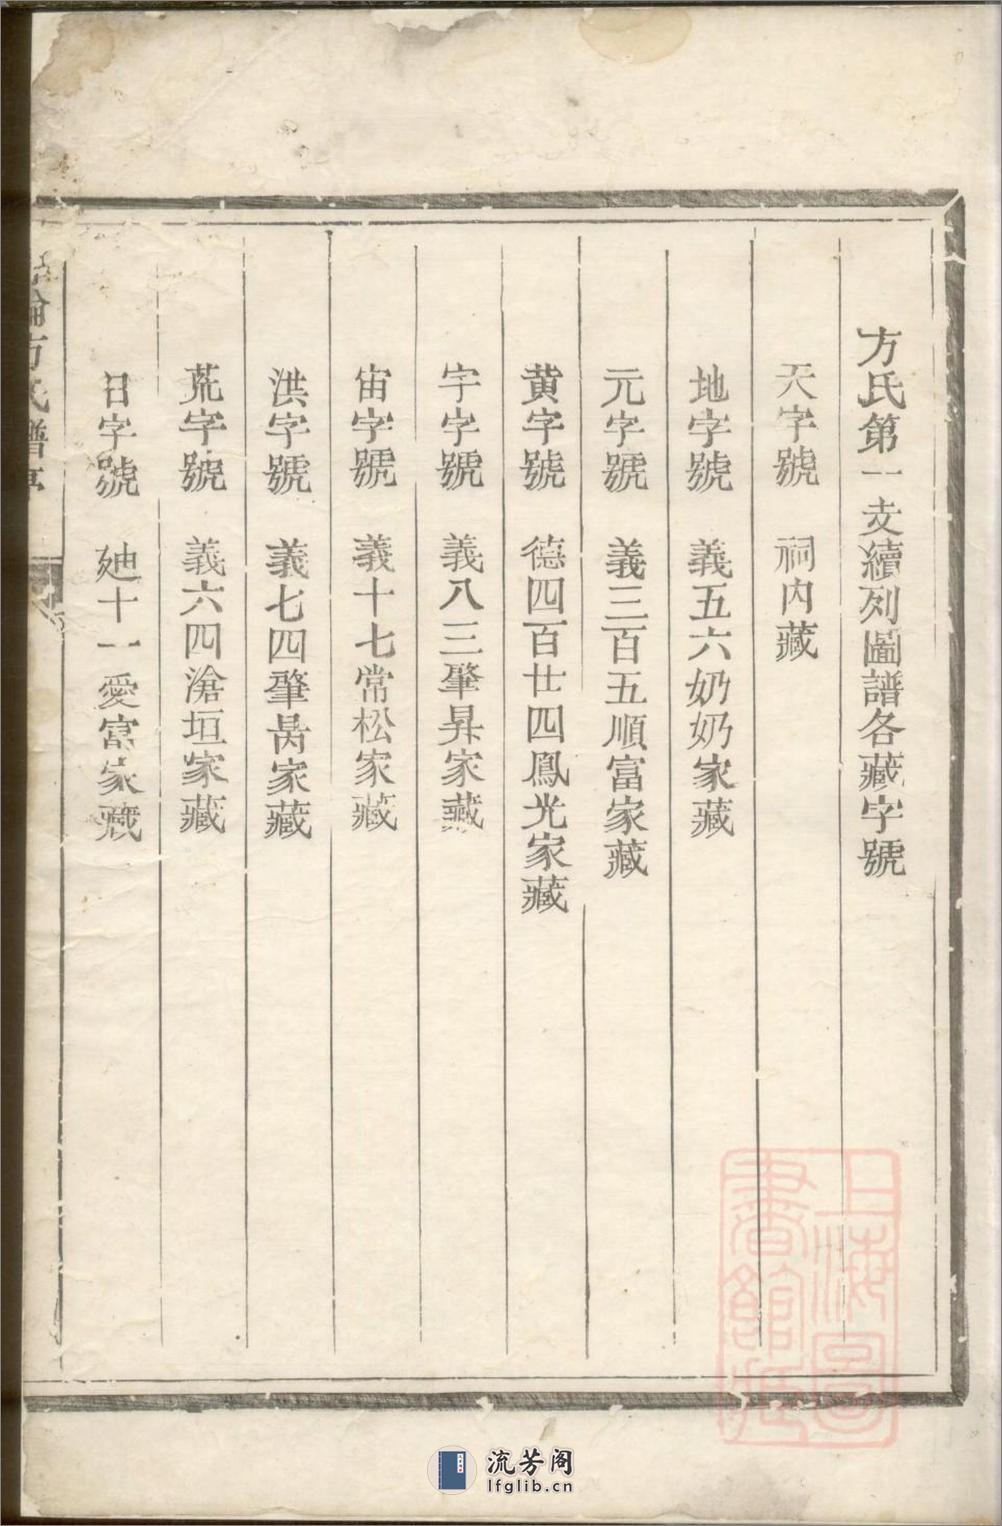 方氏第一支續列圖譜各藏字號
天字號　祠内藏
地字號　義五六奶奶家藏
元字號　義三百五順富家藏
黄字號　德四百廿四鳳光家藏
宇字號　義八三肇昇家藏
宙字號　義十七常松家藏
洪字號　義七四肇昺家藏
荒字號　義六四滄垣家藏
日字號　廸十一愛富家藏
方氏譜
上海圖書館藏
流芳阁
lfglib.cn